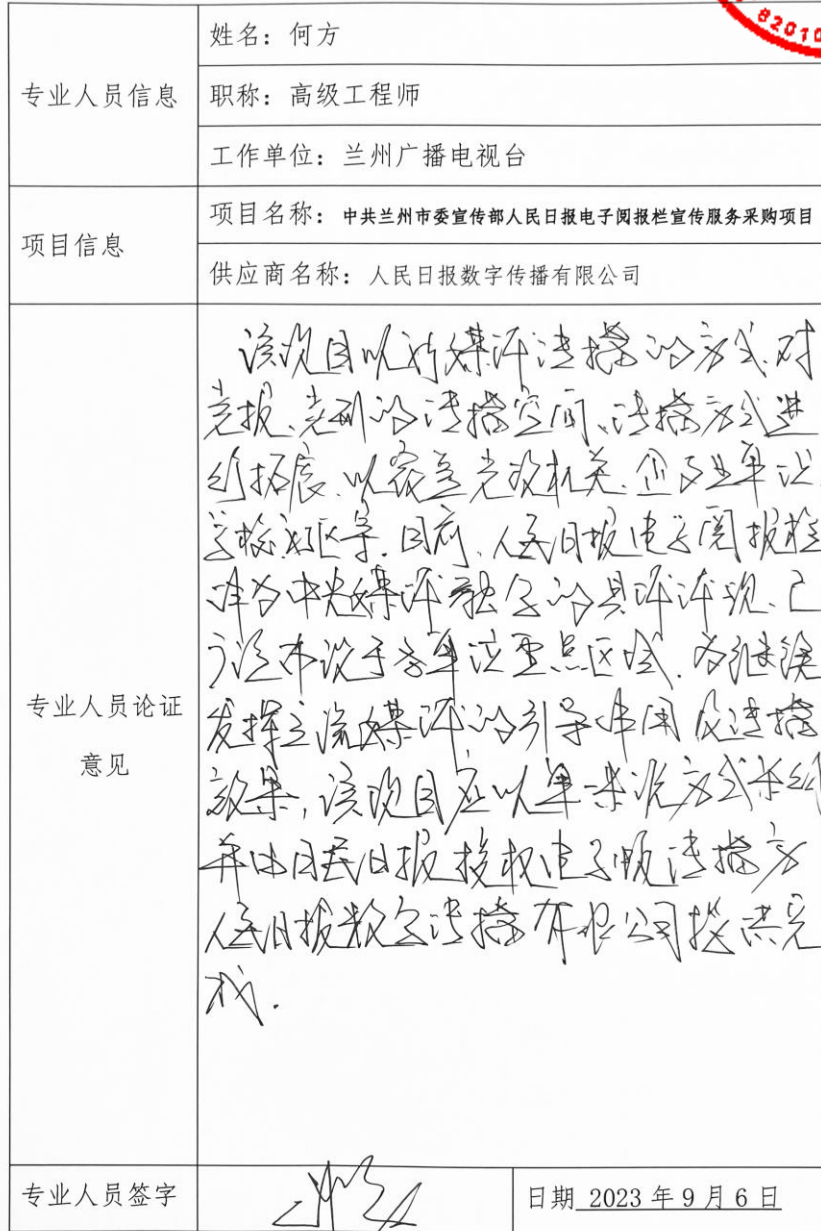 82010
专业人员信息
姓名：何方
职称：高级工程师
工作单位：兰州广播电视台
项目信息
项目名称：中共兰州市委宣传部人民日报电子阅报栏宣传服务采购项目
供应商名称：人民日报数字传播有限公司
专业人员论证
意见
该项目以新媒体传播的方式、对
党报、党刊的传播空间、传播方式进
行拓展、以覆盖党政机关、企事业单位
学校社区等. 目前、人民日报电子阅报栏
作为中央媒体融合的具体体现、已
广泛布设于各单位重点区域、为继续
发挥主流媒体的引导作用及传播
效果, 该项目应以单一来源方式采购
并由人民日报授权电子版传播方
人民日报数字传播有限公司提供完
成.
专业人员签字
日期 2023 年 9 月 6 日